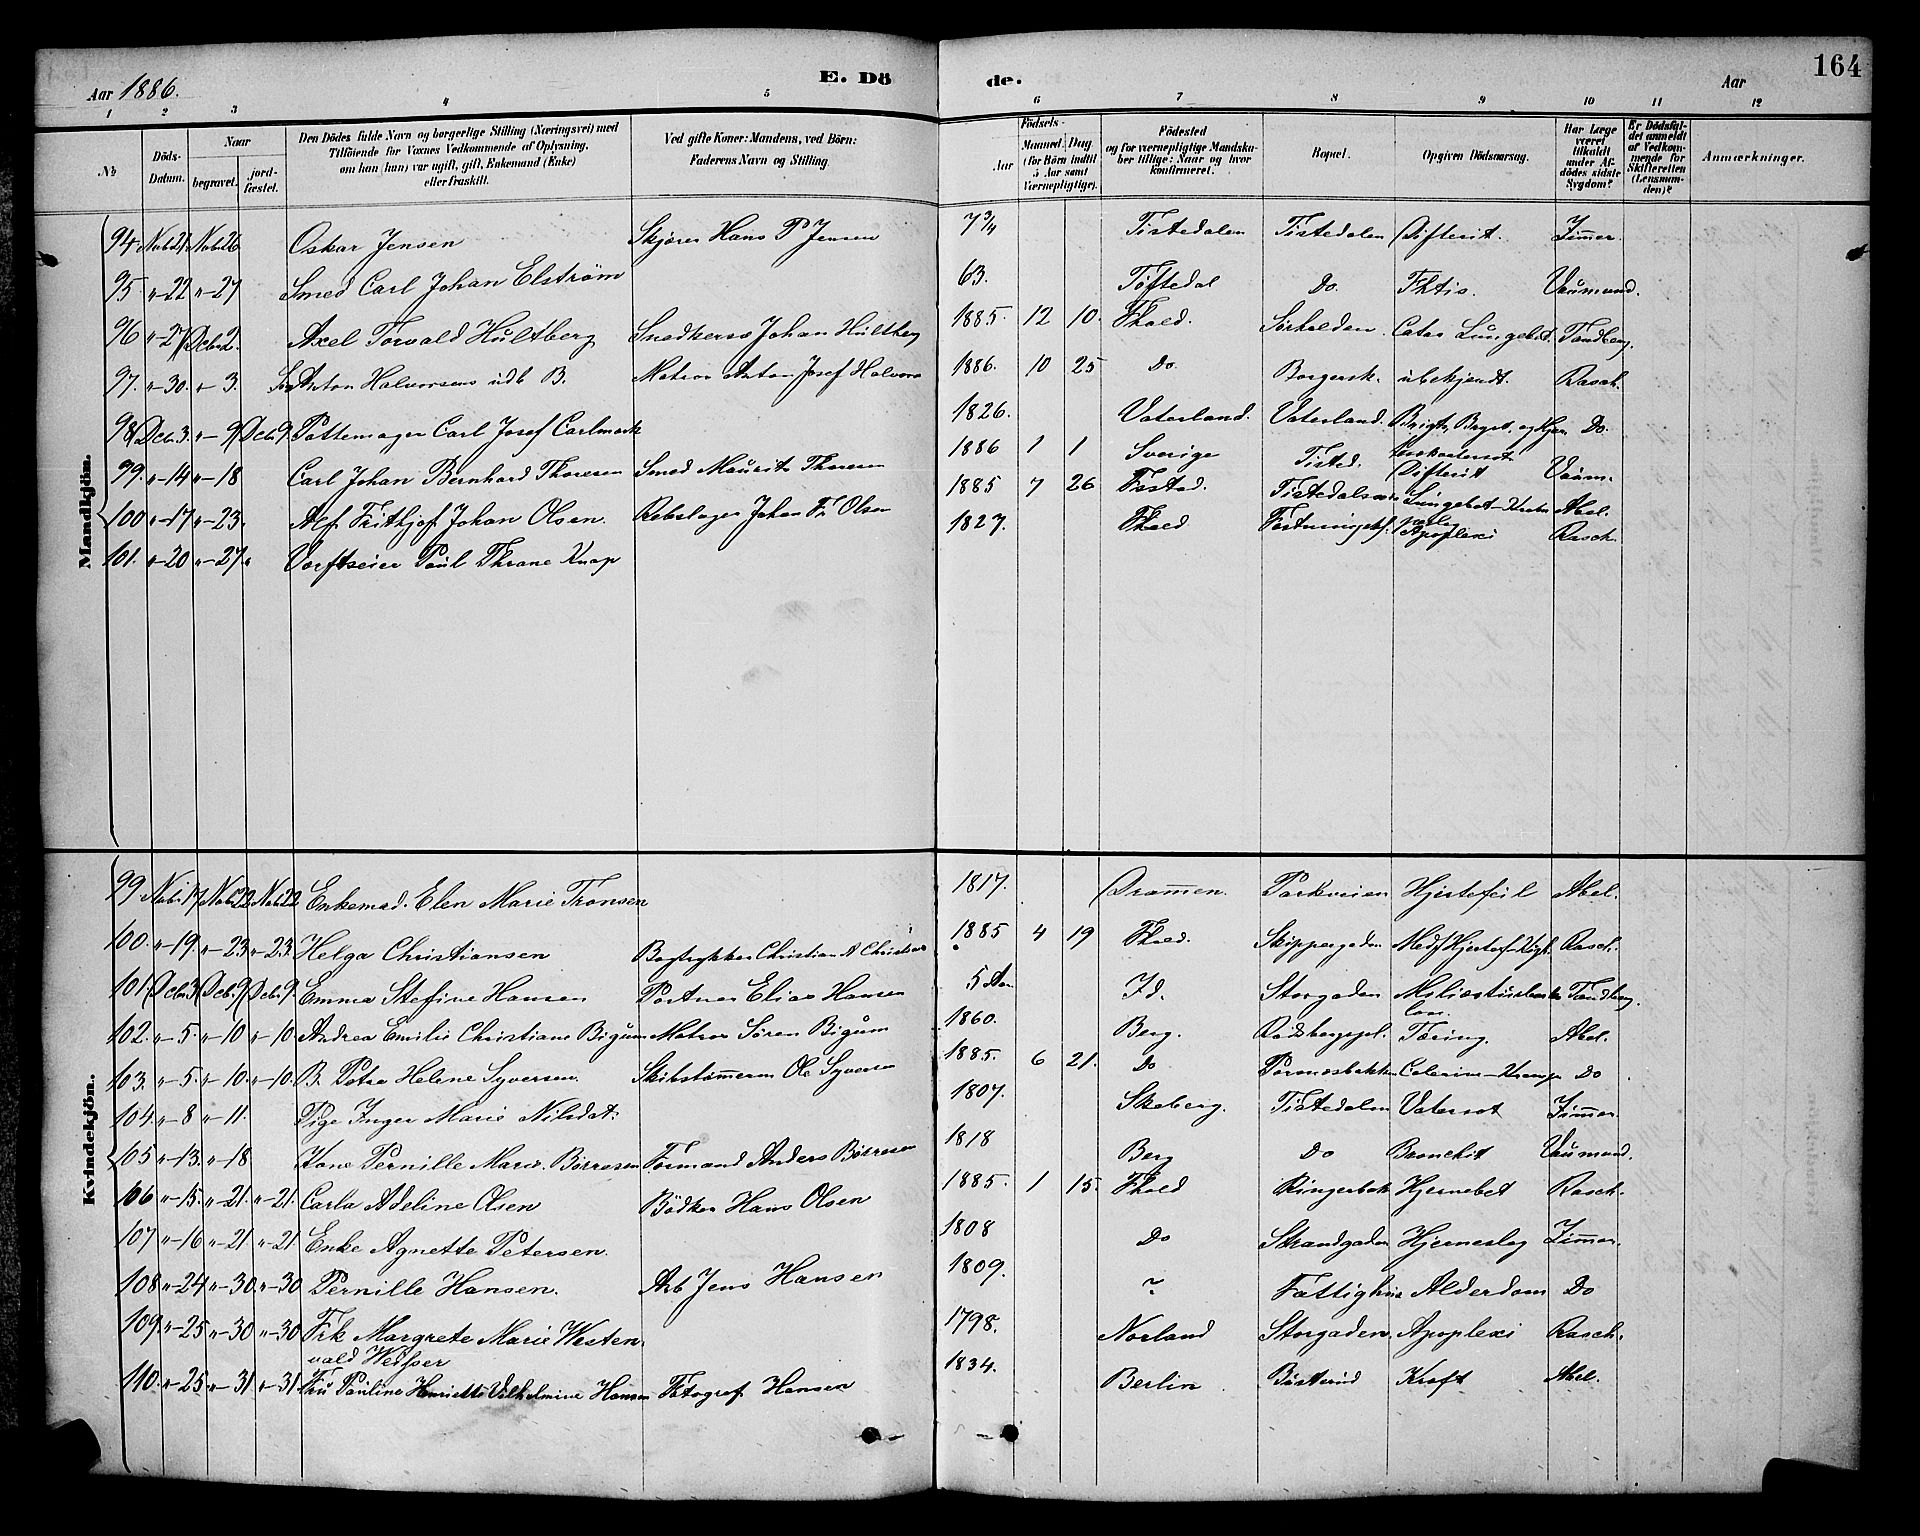 164
Aar 1886. E. Dö de. Aar
1 2 3 4 5 6 7 8 9 10 11 12
№ Döds-Datum. Naar begravet. jordfæstet. Den Dödes fulde Navn og borgerlige Stilling (Næringsvei) med Tilföiende for Voxnes Vedkommende af Oplysning, om han (hun) var ugift, gift, Enkemand (Enke) eller fraskilt. Ved gifte Koner: Mandens, ved Börn: Faderens Navn og Stilling. Födsels- Aar Maaned, Dag (for Börn indtil 5 Aar samt Værnepligtige). Födested og for værnepligtige Mandskaber tillige: Naar og hvor konfirmeret. Bopæl. Opgiven Dödsaarsag. Har Læge været tilkaldt under Afdödes sidste Sygdom? Er Dödsfaldet anmeldt af Vedkommende for Skifteretten (Lensmanden)? Anmærkninger.
Mandkjön.
94. Nvb 21 Nvb 26 Oskar Jensen Skjörer Hans P Jensen 7¾ Tistedalen Tistedalen Difterit. Zimmer.
95. " - 22 " - 27 Smed Carl Johan Elström 63. Töftedal Do. Fhtis. Vaumund.
96 " - 27 Dcbr 2. Axel Torvald Hultberg Snedkersv Johan Hultberg 1885. 12 10. Fhald. Sörhalden. Catar Lungebet. Tandberg.
97. " - 30. " - 3. Anton Halvorsens udb B. Matros Anton Josef Halvors 1886. 10 25 Do. Borgersk. ubekjendt. Rasch.
98 Dcb. 3. " - 9 Dcb. 9 Pottemager Carl Josef Carlmark 1826. Vaterland. Vaterland. Do.
99. " - 14 " - 18 Carl Johan Bernhard Thoresen Smed Maurits Thoresen 1886 1 1 Sverige Tisted. Difterit Vaum.
100 " - 17 " - 23. Alf Frithjof Johan Olsen. Rebslager Johan Fr Olsen 1885 7 26 Tistedalen Lungebet - Abel.
101. " - 20 " - 27 " Værftseier Paul Thrane Knap 1827. Fhald Apoplexi Rasch
Kvindekjön.
99 Nvb. 17 Nvb. 22 Nvb. 22 Enkemad. Elen Marie Tronsen 1817. Drammen. Parkveien Hjertefeil Abel.
100. " - 19. " - 23 " - 23. Helga Christiansen Bogtrykker Christian A Christians 1885 4 19 Fhald. Skippergaden Rasch.
101. Dcbr. 3 Dcb. 9 Dcb. 9 Emma Stefine Hansen Portner Elias Hansen 5 Aar Id. Storgaden Miliærtuberku lose. Tandberg.
102. " - 5. " - 10 " - 10. Andrea Emilie Christiane Bigum Matros Sören Bigum 1860. Berg. Rödsbergspl. Tæring. Abel.
103. " - 5. " - 10. " - 10. B. Petra Helene Syversen. Skibstömerm Ole Syversen 1885. 6 21. Do Colerine - Krampe Do.
104. " - 8 " - 11. Pige Inger Marie Nilsdat. 1807. Skeberg. Tistedalen Vatersot Zimmer.
105 " - 13. " - 18 Kone Pernille Marie Börresen Formand Anders Börresen 1818 Berg Do Bronchit Vaumund.
106 " - 15. " - 21. " - 21. Carla Adeline Olsen Bödker Hans Olsen 1885. 1 15. Fhald Ringerbak Hjernebet Rasch.
107 " - 16 " - 21 " - 21 Enke Agnette Petersen. 1808 Do Strandgaden Hjerneslag Zimmer.
108 " - 24 " - 30. " - 30 Pernille Hansen. Arb Jens Hansen 1809. ? Fattighus Alderdom Do
109. " - 25 " - 30 " - 30 Frk Margrete Marie Westen 1798. Norland Storgaden. Apoplexi Rasch.
vald Wedsser
110. " - 25 " - 31 " - 31. Fru Pauline Henriette Vilhelmine Hansen Fotograf Hansen 1834. Berlin Kræft Abel.